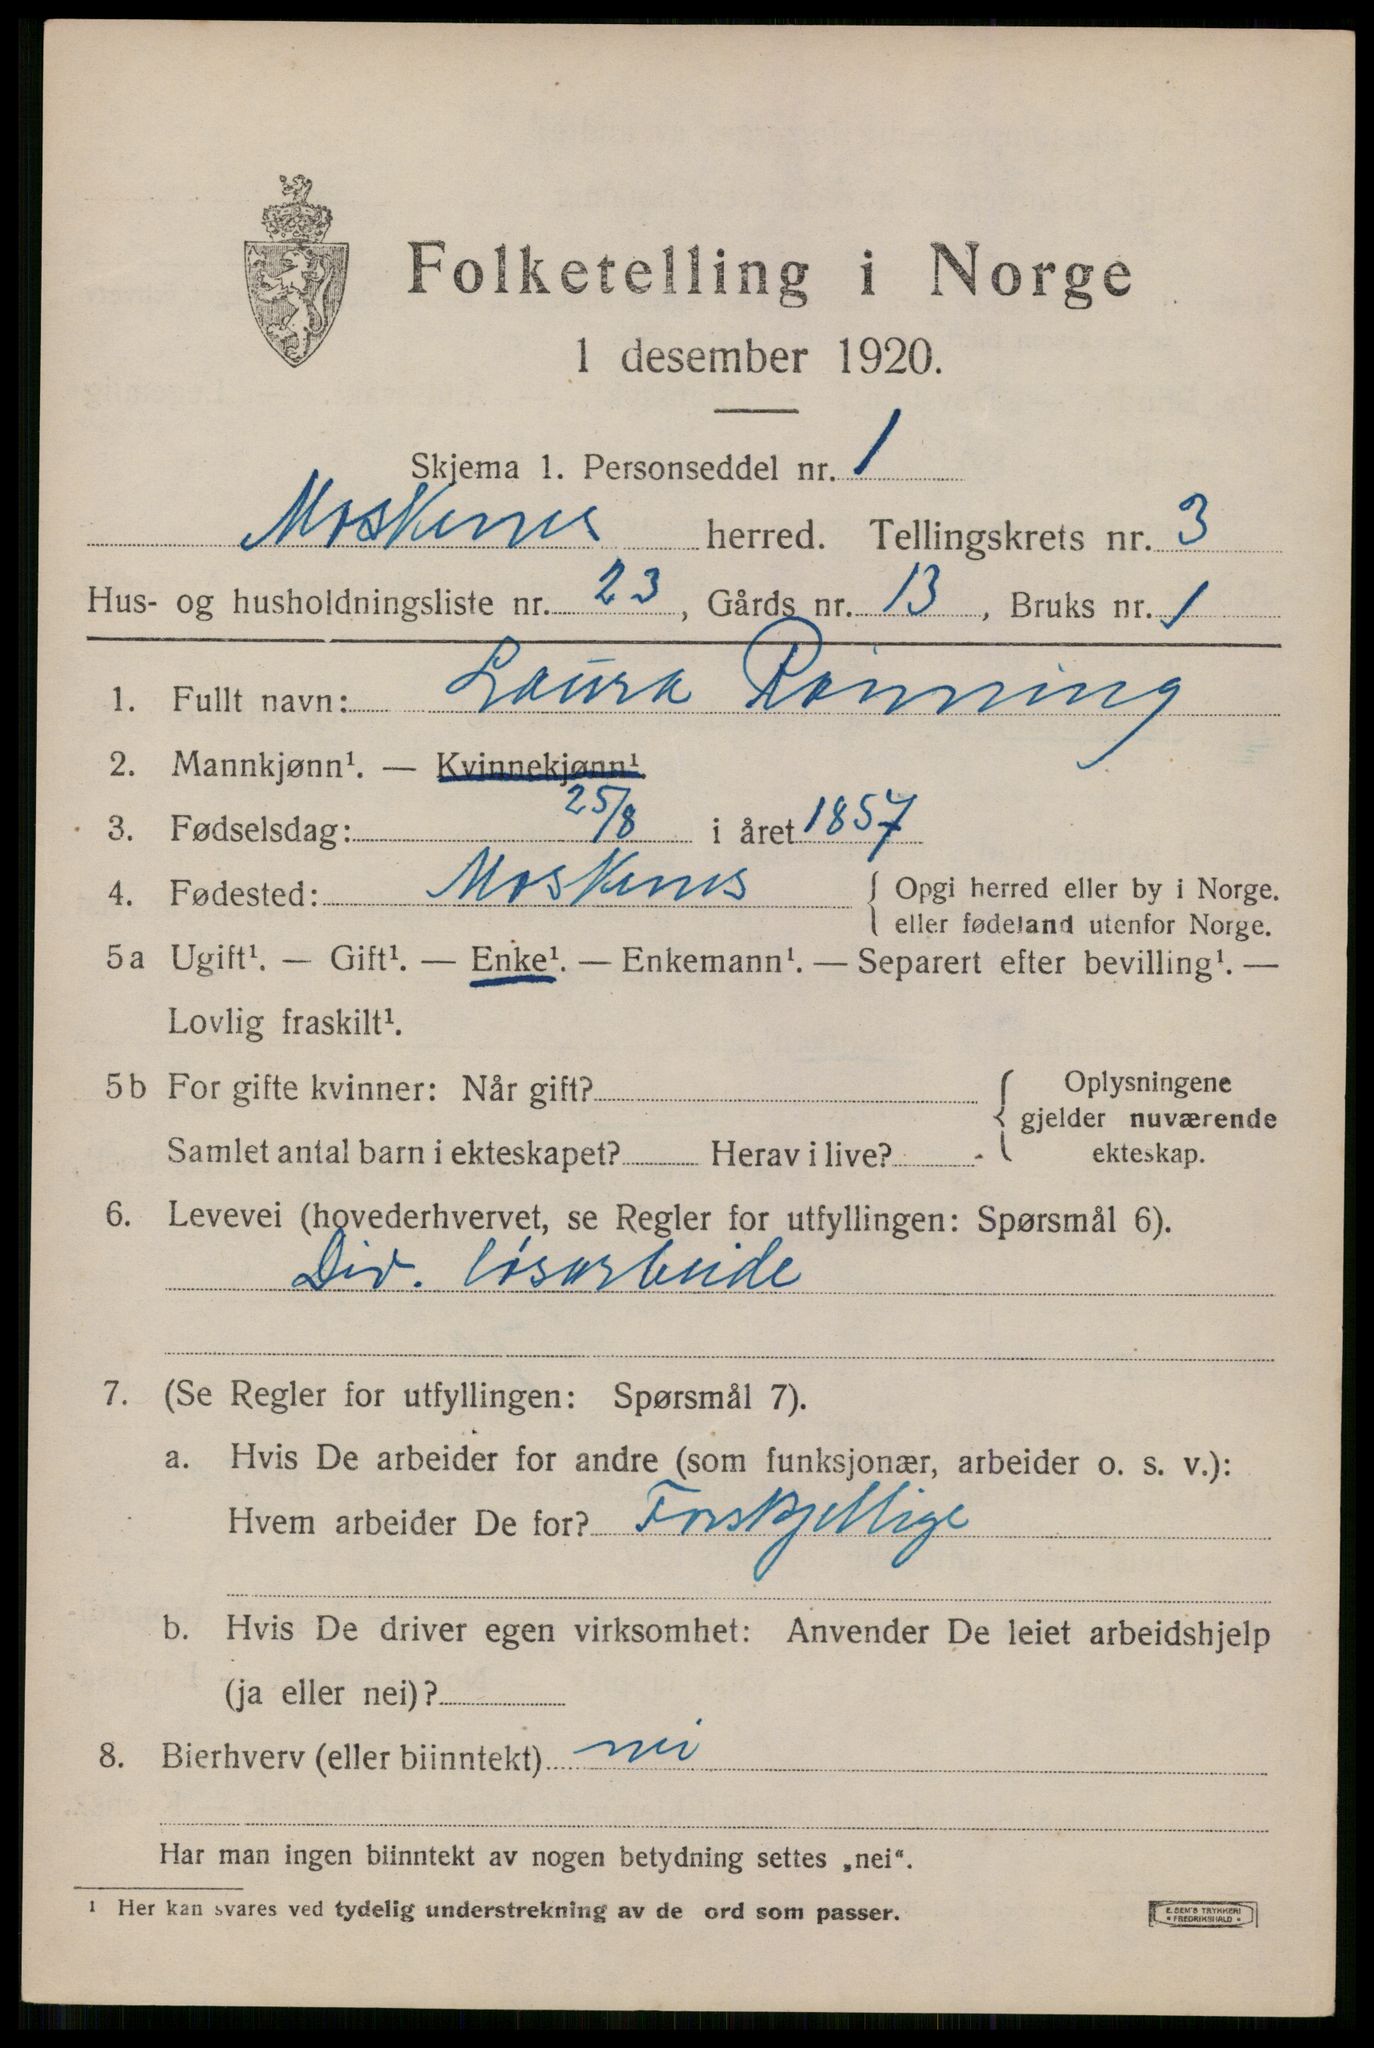 Folketelling i Norge
1 desember 1920.
Skjema 1. Personseddel nr. 1
Moskenes herred. Tellingskrets nr. 3
Hus- og husholdningsliste nr. 23, Gårds nr. 13, Bruks nr. 1
1. Fullt navn: Laura Rønning
2. Mannkjønn¹. — Kvinnekjønn¹.
3. Fødselsdag: 25/8 i året 1857
4. Fødested: Moskenes { Opgi herred eller by i Norge.
eller fødeland utenfor Norge.
5a Ugift¹. — Gift¹. — Enke¹. — Enkemann¹. — Separert efter bevilling¹. —
Lovlig fraskilt¹.
5b For gifte kvinner: Når gift? { Oplysningene
gjelder nuværende
Samlet antal barn i ekteskapet? Herav i live? ekteskap.
6. Levevei (hovederhvervet, se Regler for utfyllingen: Spørsmål 6).
Div. løsarbeide
7. (Se Regler for utfyllingen: Spørsmål 7).
a. Hvis De arbeider for andre (som funksjonær, arbeider o. s. v.):
Hvem arbeider De for? Forskjellige
b. Hvis De driver egen virksomhet: Anvender De leiet arbeidshjelp
(ja eller nei)?
8. Bierhverv (eller biinntekt) nei
Har man ingen biinntekt av nogen betydning settes „nei“.
¹ Her kan svares ved tydelig understrekning av de ord som passer.
E. SEM'S TRYKKERI
• FREDRIKSHALD •